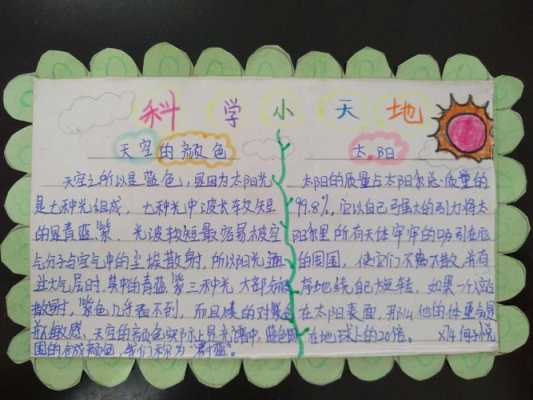 科学小天地
天空的颜色
天空之所以是蓝色,是因为太阳光
是七种光组成,七种光中波长较短
的是青蓝紫,光波较短最容易被空
气分子与空气中的尘埃散射,所以阳光
过大气层时,其中的青蓝紫三种光大部分
散射,紫色几乎看不到,而且
敏感,天空的颜色实际上是光谱中,蓝色
围的合成颜色,我们称为"蔚蓝"。
太阳
太阳的质量占太阳系总质量的
99.8%,它以自己强大的引力将太
阳系里所有天体牢牢的吸引在
的周围,使它们不离不散,并有
地绕自己旋转,如果一个人站
在太阳表面,那么他的体重
在地球上的20倍。